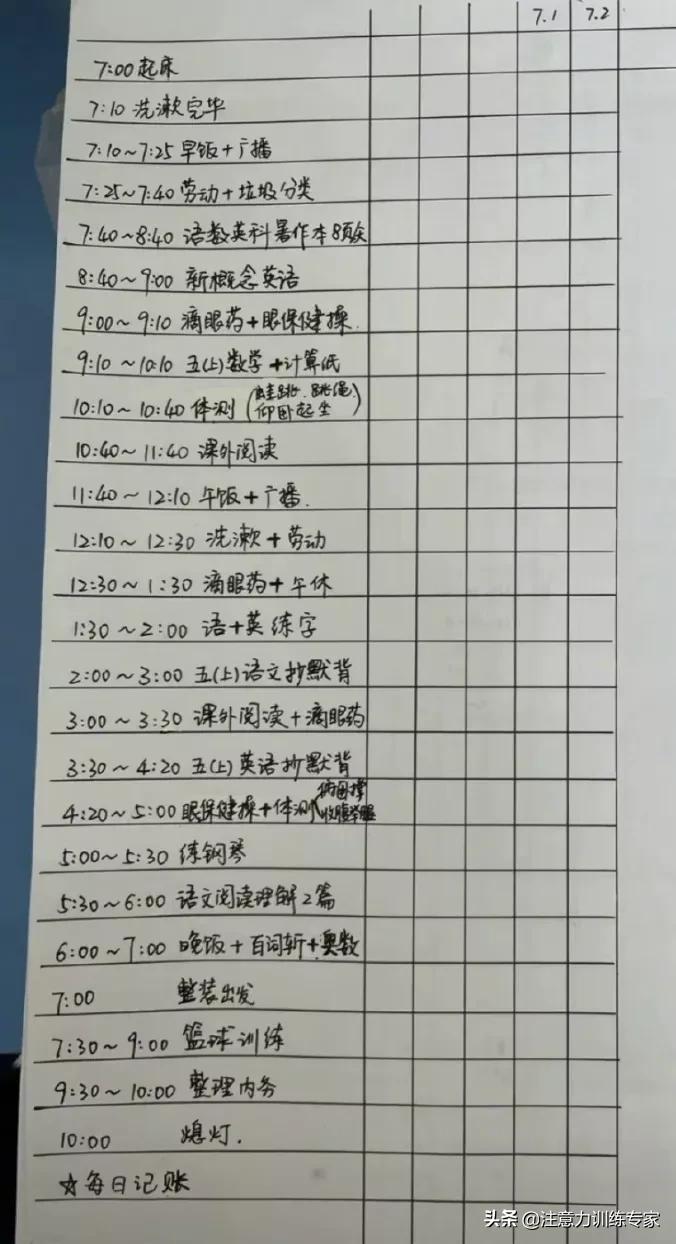 7.1 7.2
7:00起床
7:10 洗漱完毕
7:10~7:25 早饭+广播
7:25~7:40 劳动+垃圾分类
7:40~8:40 语数英科暑作本8页
8:40~9:00 新概念英语
9:00~9:10 滴眼药+眼保健操.
9:10~10:10 五(上)数学+计算纸
10:10~10:40 体测(蛙跳.跳绳
仰卧起坐)
10:40~11:40 课外阅读
11:40~12:10 午饭+广播.
12:10~12:30 洗漱+劳动
12:30~1:30 滴眼药+午休
1:30~2:00 语+英练字
2:00~3:00 五(上)语文抄默背
3:00~3:30 课外阅读+滴眼药
3:30~4:20 五(上)英语抄默背
4:20~5:00 眼保健操+体测(俯卧撑
5:00~5:30 练钢琴
5:30~6:00 语文阅读理解2篇
6:00~7:00 晚饭+百词斩+奥数
7:00 整装出发
7:30~9:00 篮球训练
9:30~10:00 整理内务
10:00 熄灯.
☆每日记账
头条 @注意力训练专家